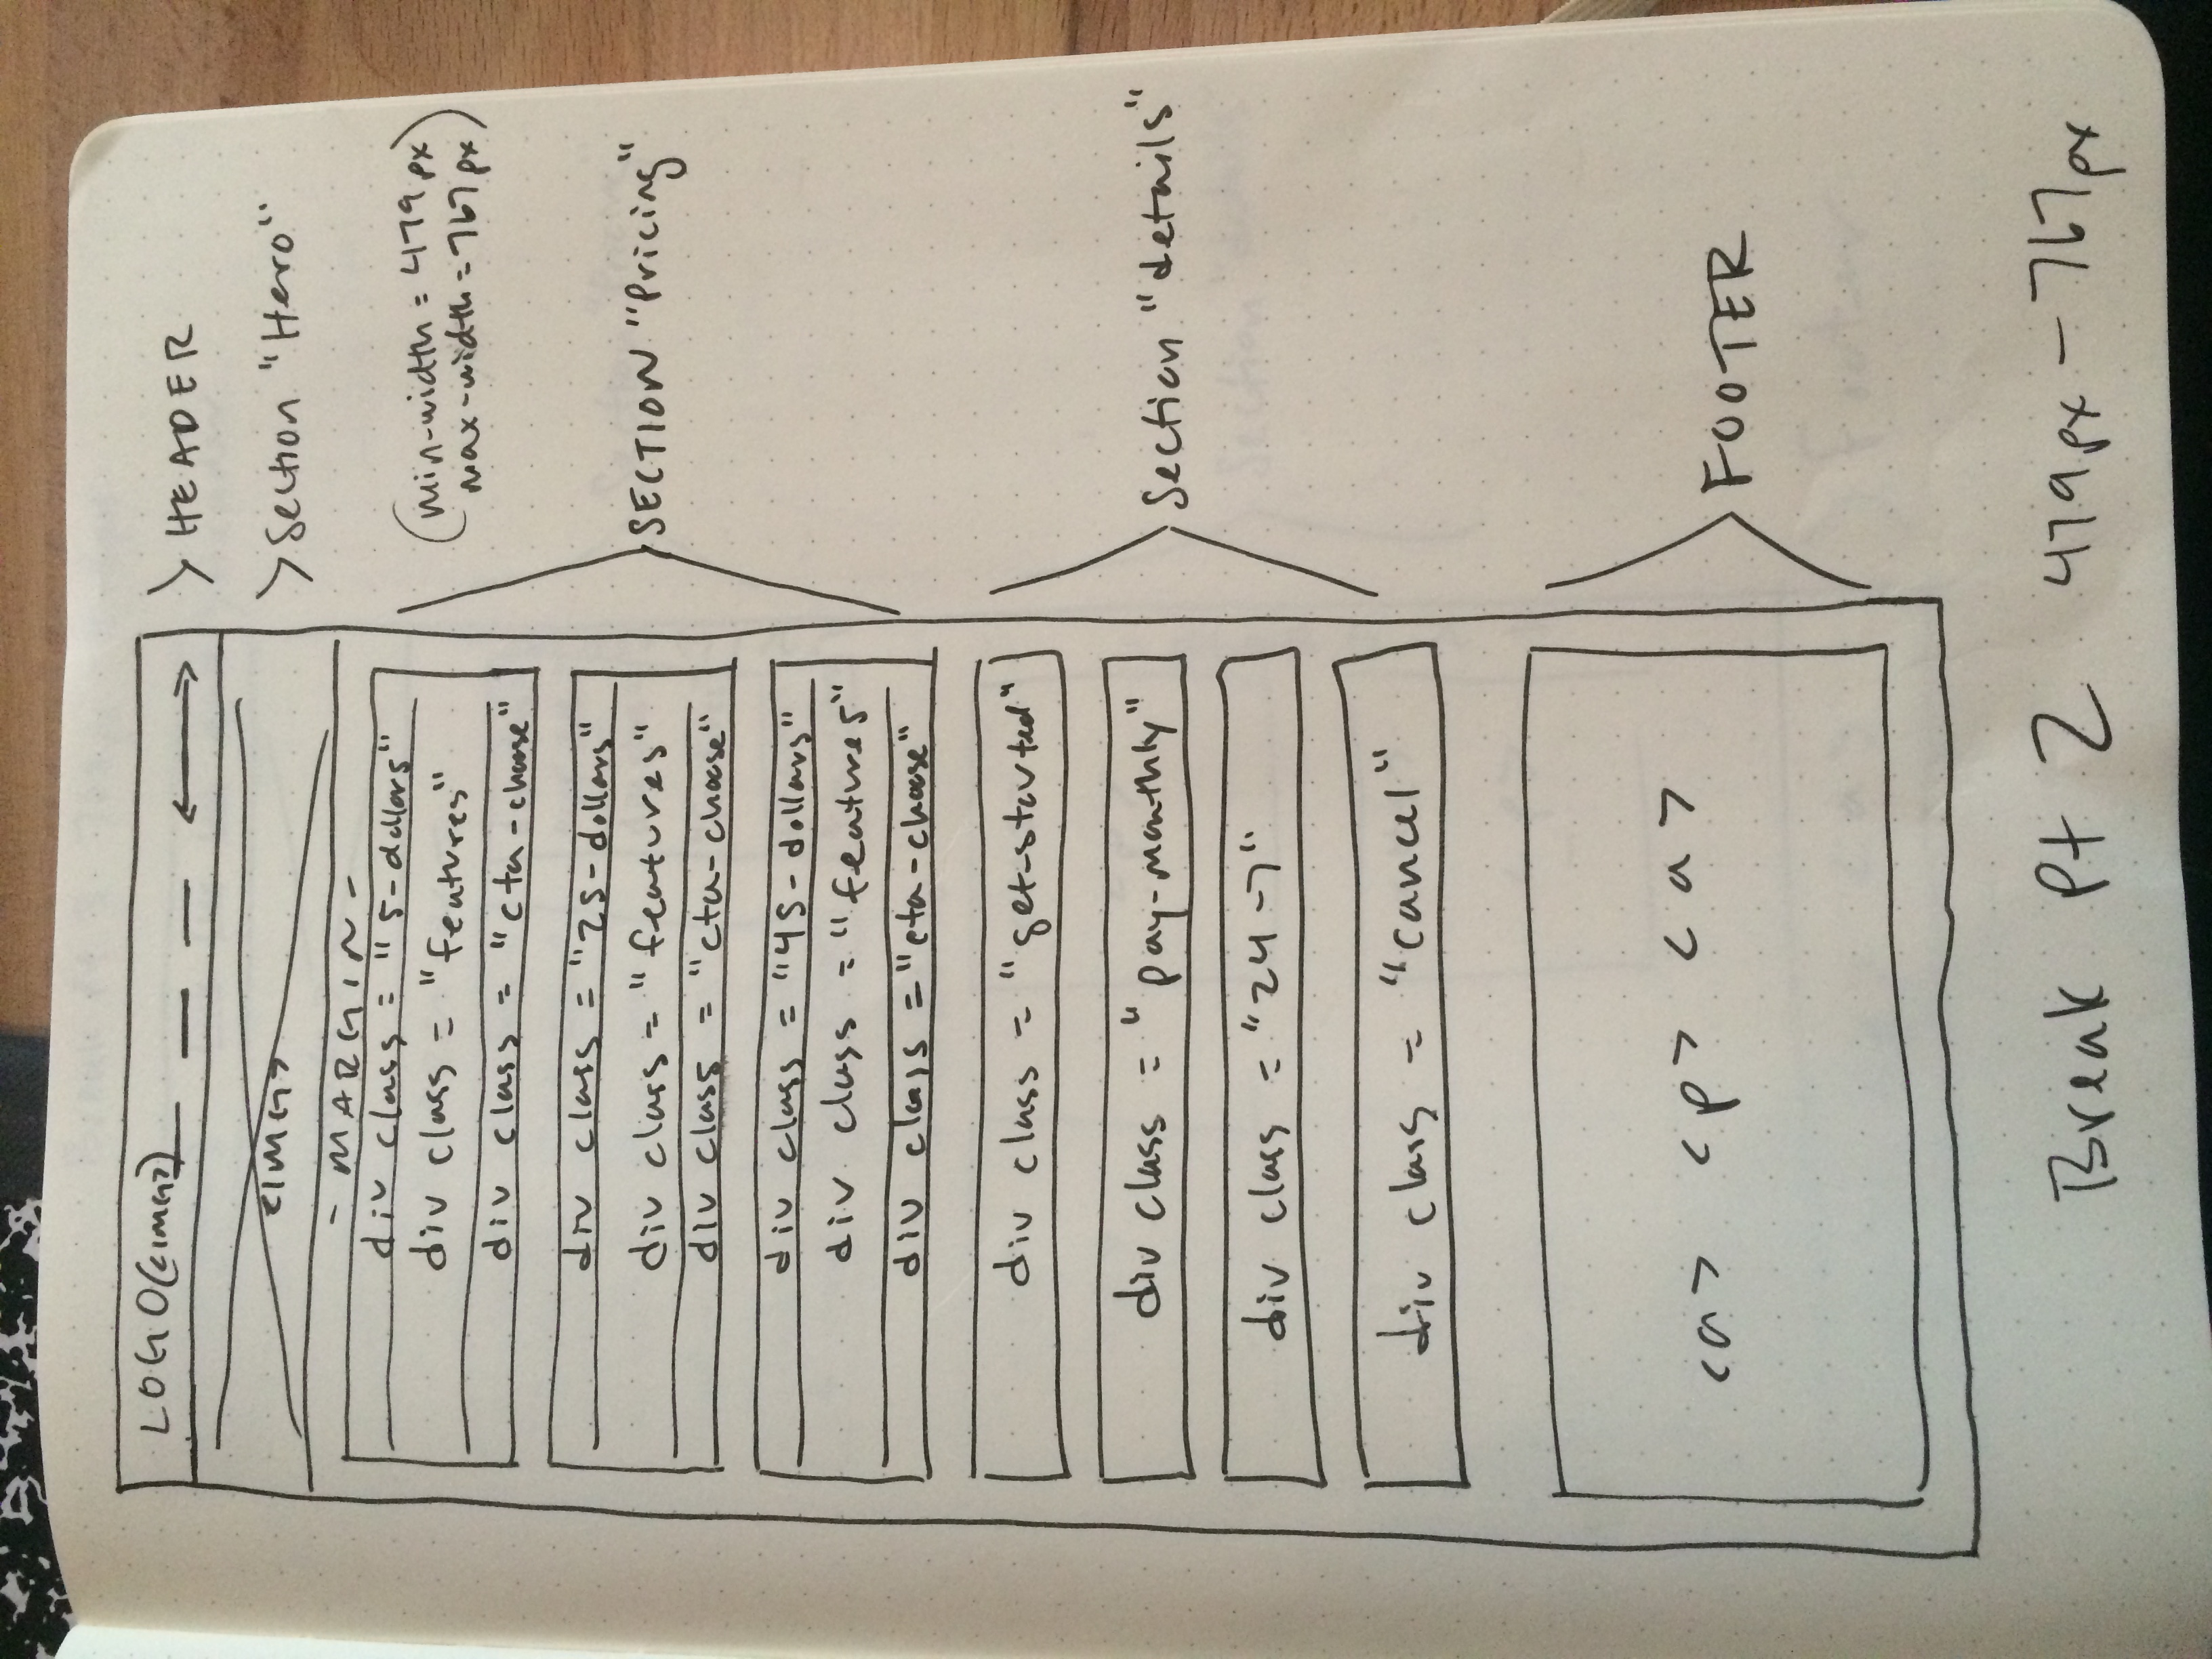 LOGO(<IMG>)
> HEADER
<IMG>
> Section "Hero"
- MARGIN -
div class = "5-dollars"
div class = "features"
div class = "cta-choose"
(min-width = 479 px
max-width = 767 px)
div class = "25-dollars"
div class = "features"
div class = "cta-choose"
SECTION "Pricing"
div class = "45-dollars"
div class = "features"
div class = "cta-choose"
div class = "get-started"
div class = "pay-monthly"
Section "details"
div class = "24-7"
div class = "cancel"
<a> <p> <a>
FOOTER
Break Pt 2 479px - 767px